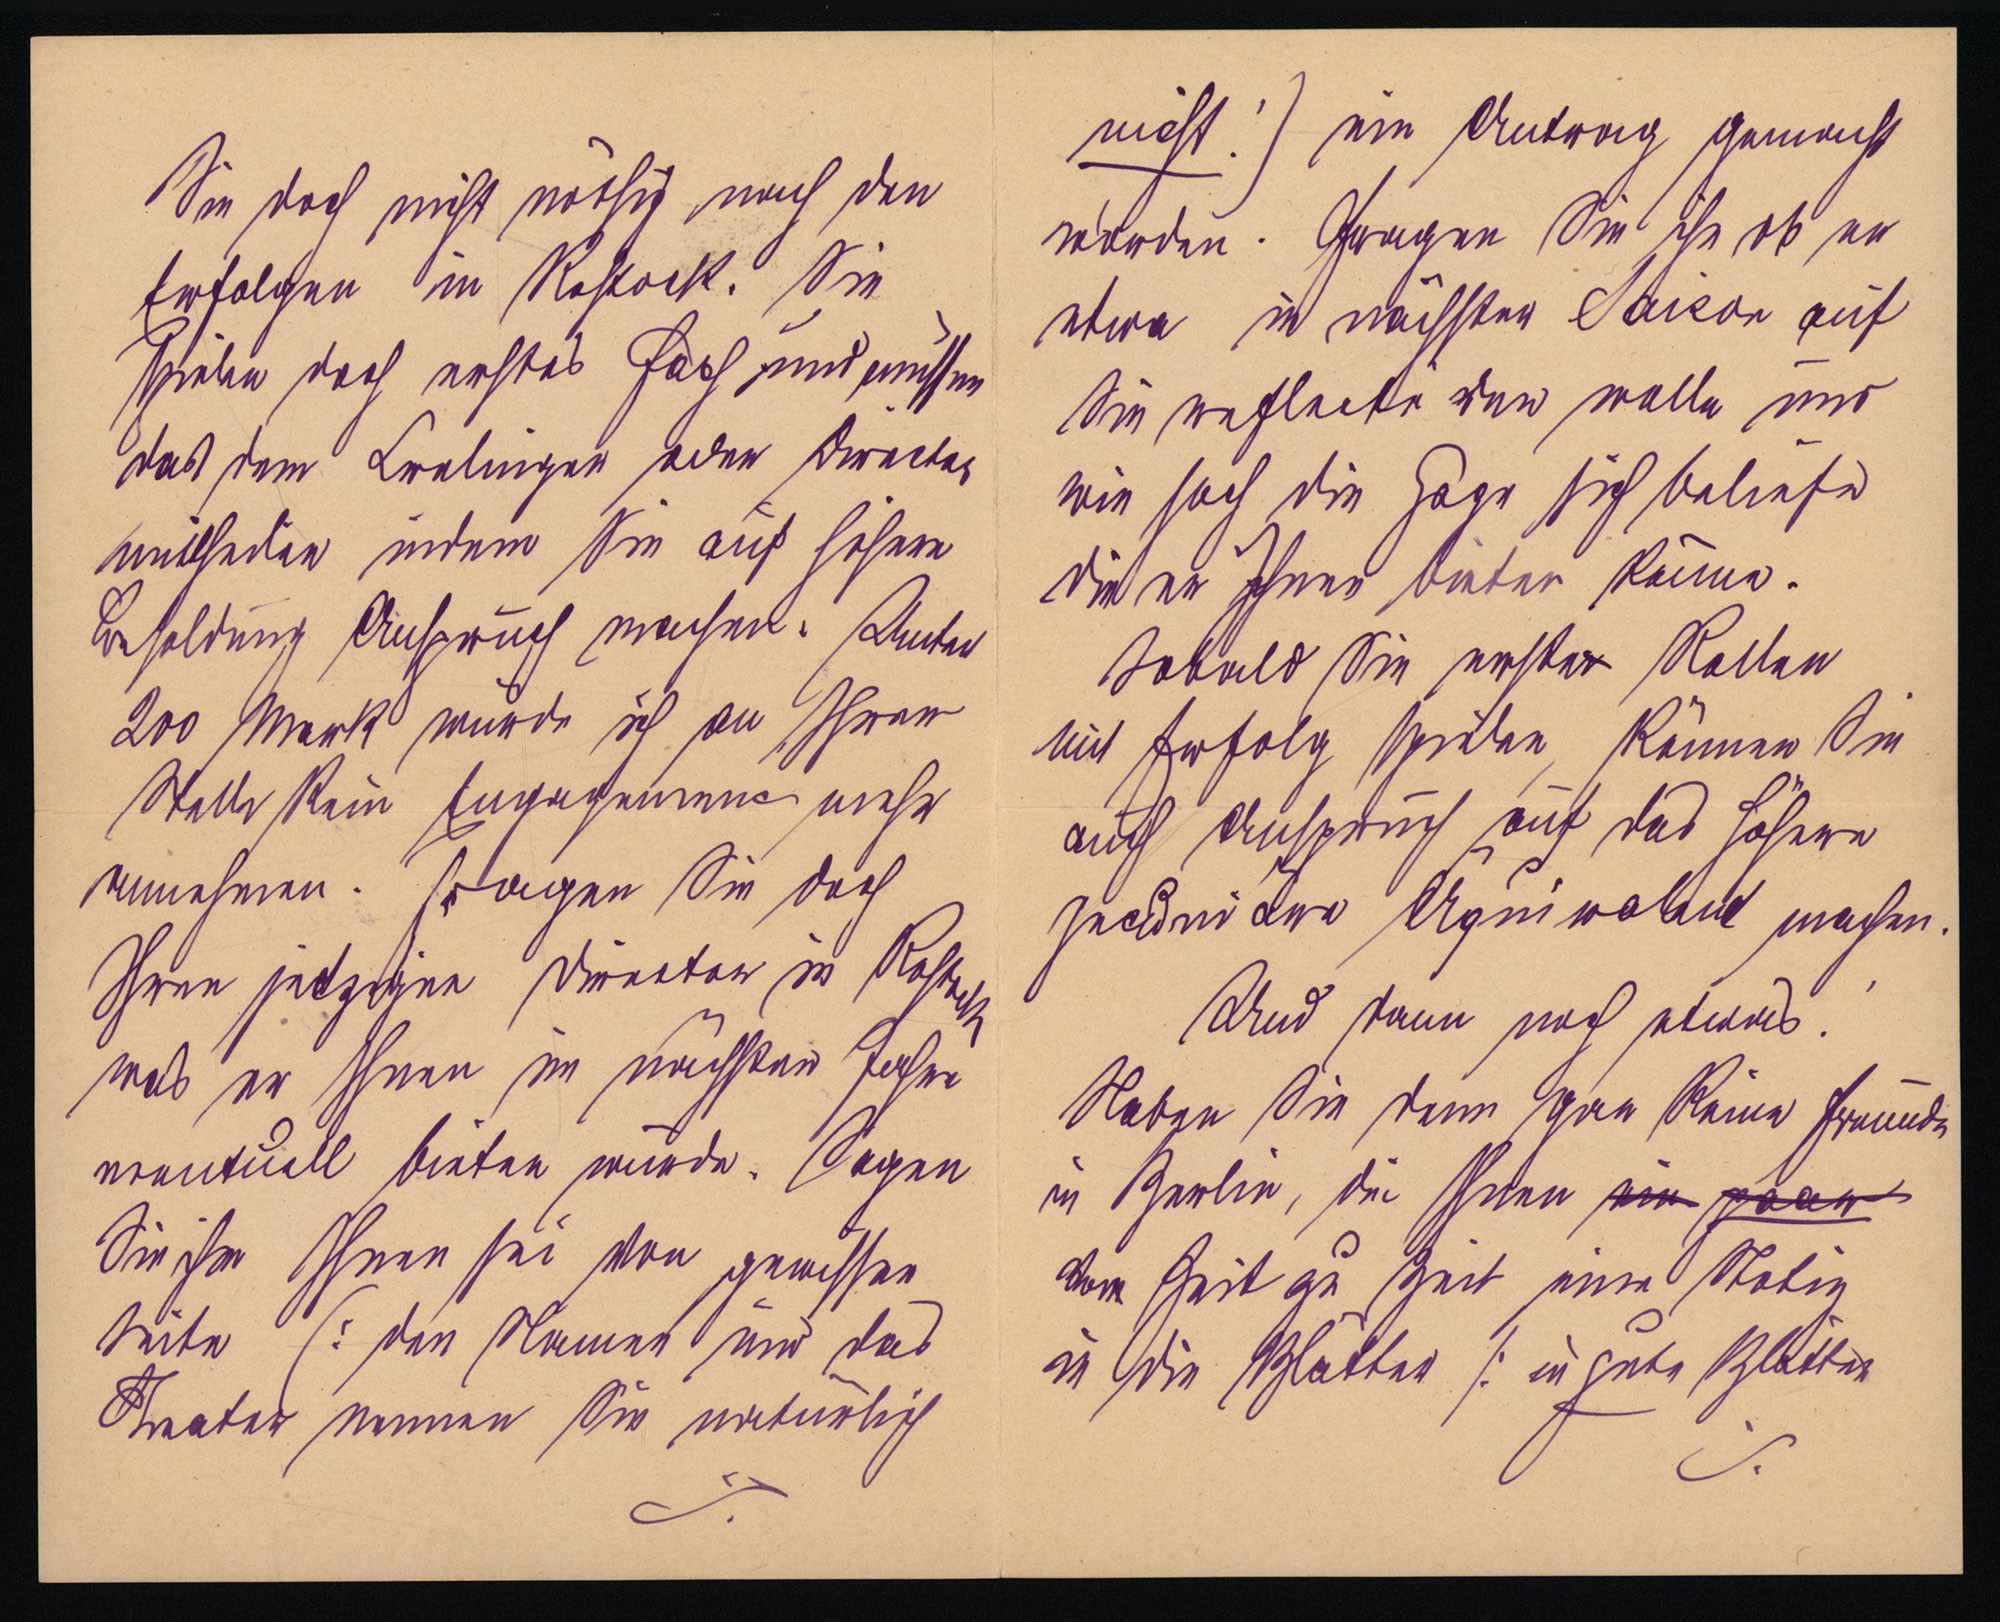 Sie doch nicht nöthig nach den
Erfolgen in Rostock. Sie
spielen doch erstes Fach und müssen
das dem Crelinger oder Director
mitheilen indem Sie auf höhere
Besoldung Anspruch machen. Unter
200 Mark würde ich an Ihrer
Stelle kein Engagement mehr
annehmen. Fragen Sie doch
Ihren jetzigen Director in Rostock
was er Ihnen im nächsten Jahre
eventuell bieten würde. Sagen
Sie ihm Ihnen sei von gewisser
Seite (: den Namen und das
Theater nennen Sie natürlich
./.
nicht!) ein Antrag gemacht
worden. Fragen Sie ihn ob er
etwa in nächster Saison auf
Sie reflectiren wolle und
wie hoch die Gage sich beliefe
die er Ihnen bieten könne.
Sobald Sie erste Rollen
mit Erfolg spielen, können Sie
auch Anspruch auf das höhere
pecuniäre Äquivalent machen.
Und dann noch etwas!
Haben Sie denn gar keine Freunde
in Berlin, die Ihnen ein paar
von Zeit zu Zeit eine Notiz
in die Blätter /: in gute Blätter
./.